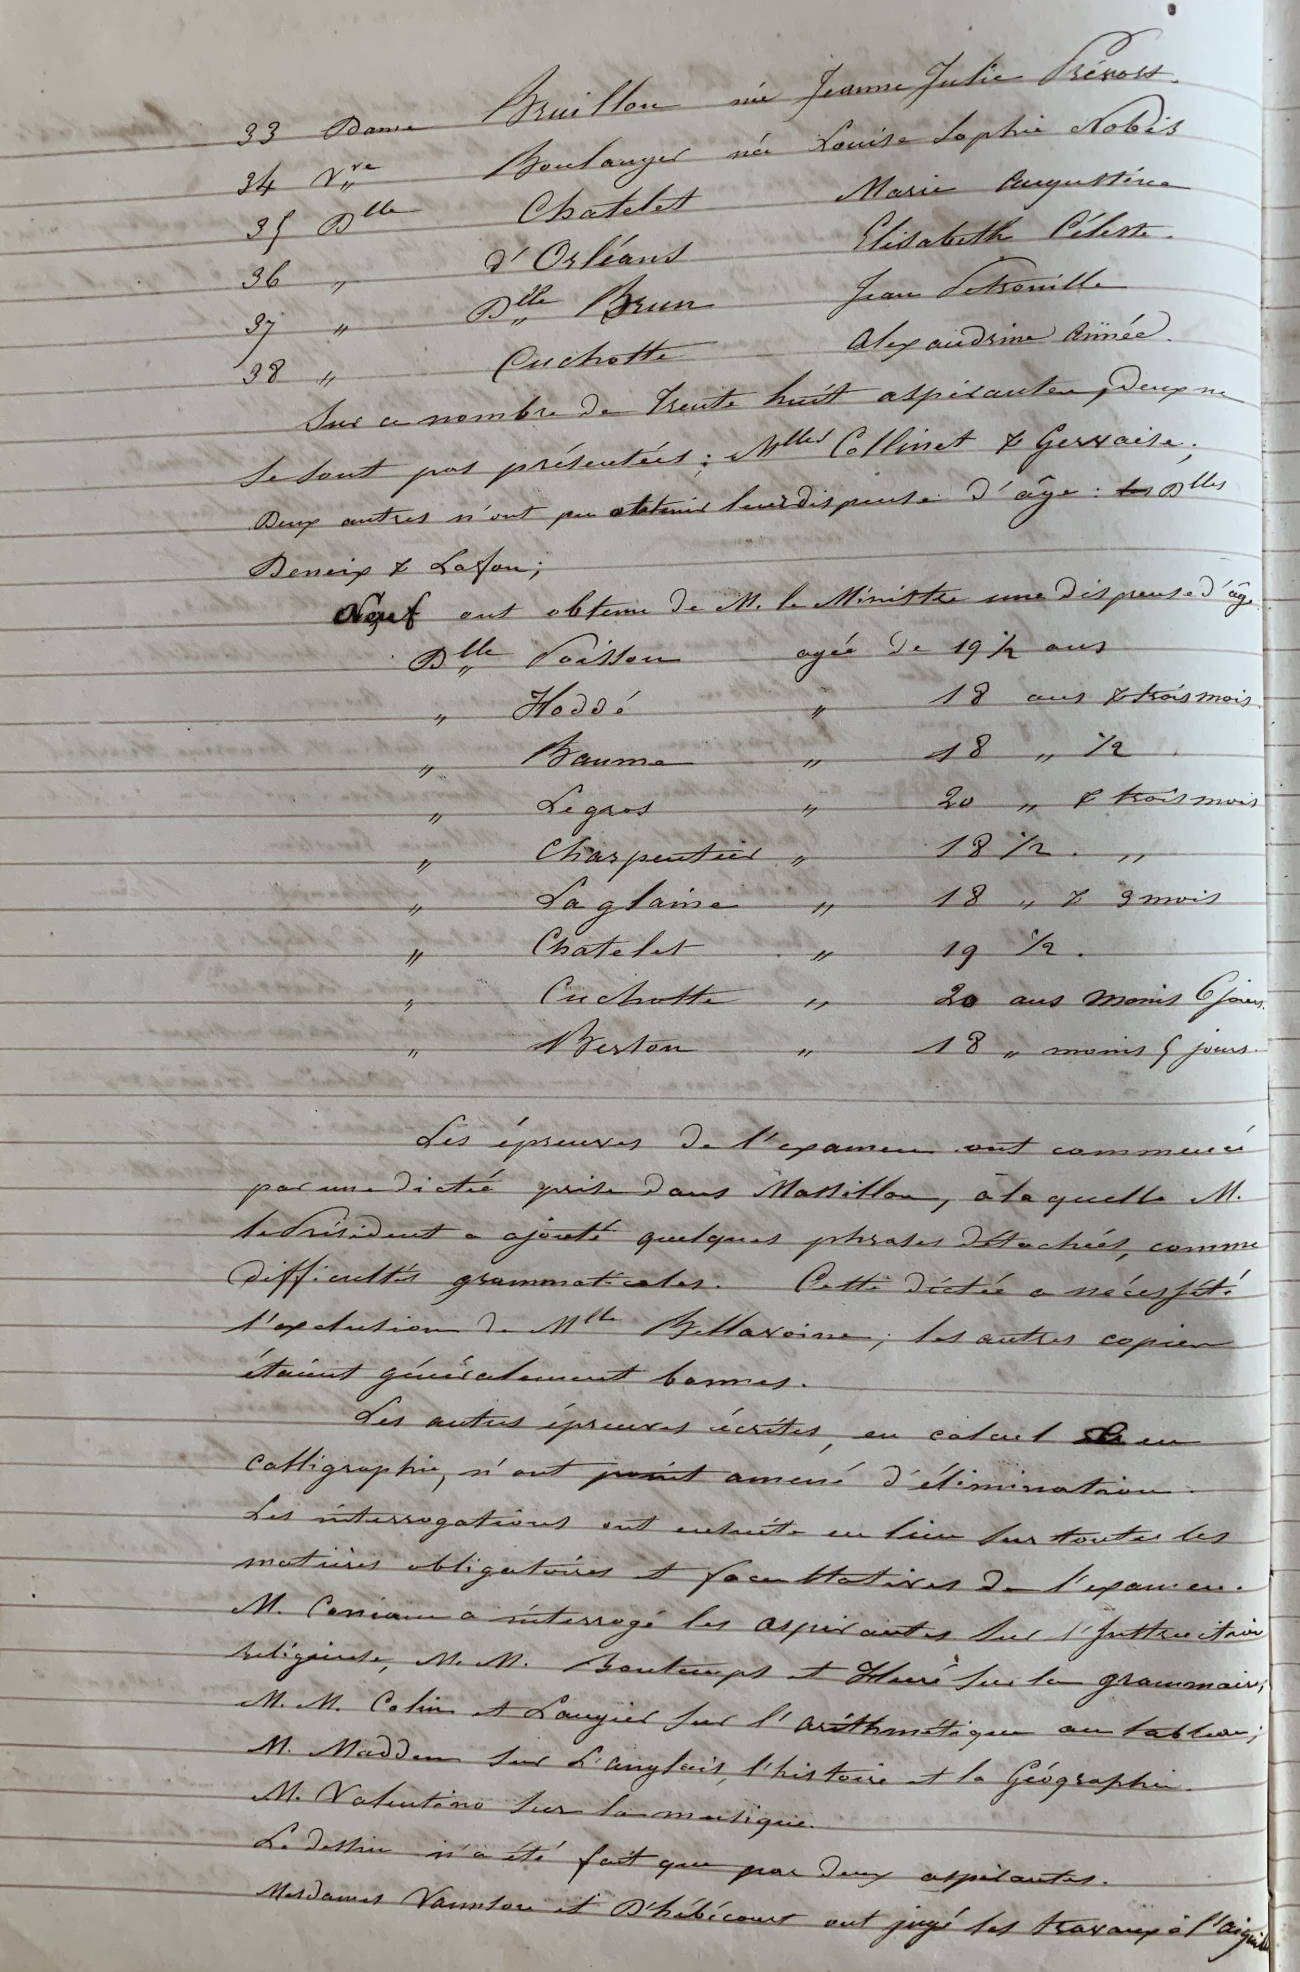 33 Dame Bruillon née Jeanne Julie Prévost.
34 Vve Boulanger née Louise Sophie Nobis
35 Dlle Chatelet Marie Augustine
36 " d'Orléans Elisabeth Céleste.
37 " Dlle Brun Jean Petronille
38 " Cuchotte Alexandrine Aimée.
Sur ce nombre de trente huit aspirantes, deux ne
se sont pas présentées : Mlles Collinet & Gervaise;
Deux autres n'ont pu obtenir leur dispense d'âge : les Dlles
Deneix & Lafon;
Neuf ont obtenu de M. le Ministre une dispense d'âge
Dlle Poisson agée de 19 1/2 ans
" Hoddé " 18 ans & trois mois
" Baume " 18 " 1/2
" Legros " 20 " & trois mois
" Charpentier " 18 1/2 . "
" Laglaine " 18 " & 3 mois
" Chatelet " 19 1/2 .
" Cuchotte " 20 ans moins 6 jours.
" Berton " 18 " moins 5 jours.
Les épreuves de l'examen ont commencé
par une dictée prise dans Massillon, à laquelle M.
le Président a ajouté quelques phrases détachées, comme
difficultés grammaticales. Cette dictée a nécessité
l'exclusion de Mlle Bellavoine; les autres copies
étaient généralement bonnes.
Les autres épreuves écrites, en calcul & en
calligraphie, n'ont point amené d'élimination.
Les interrogations ont ensuite eu lieu sur toutes les
matières obligatoires et facultatives de l'examen.
M. a interrogé les aspirantes sur l'Instruction
religieuse, M. M. Bontemps et Hué sur la grammaire;
M. M. Colin et Laugier sur l'arithmétique au tableau;
M. Madden sur L'anglais, l'histoire et la Géographie.
M. Valentino sur la musique.
Le dessin n'a été fait que par deux aspirantes.
Mesdames et D'hébécourt ont jugé les travaux à l'aiguille